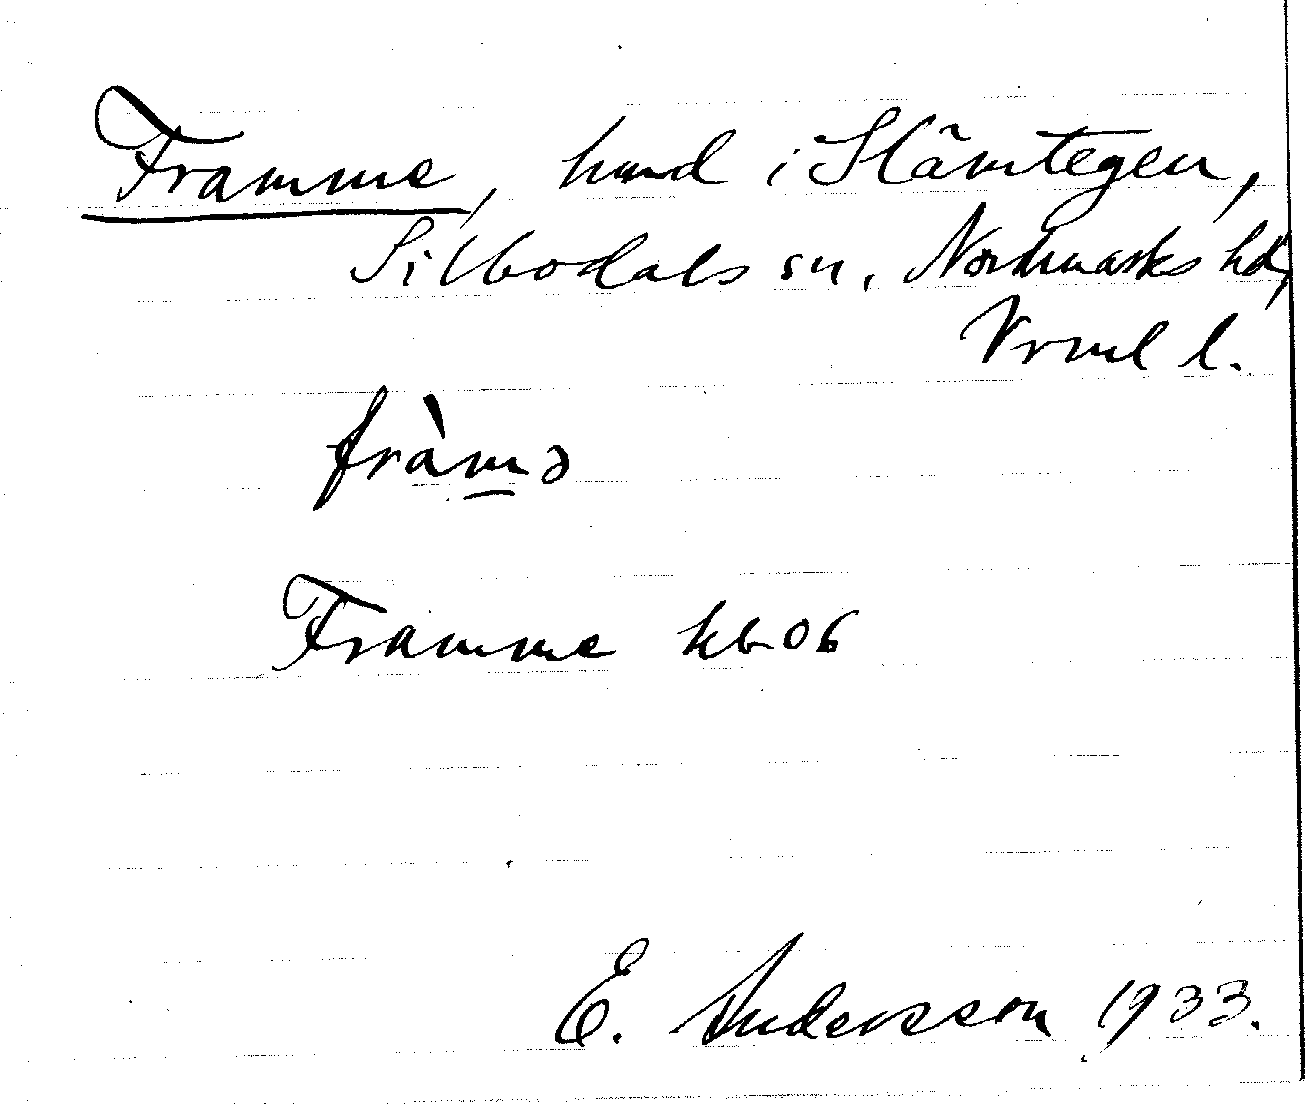 Framme, hmd i Slämtegen,
Silbodals sn, Nordmarks hd,
Vrml l.
fràm̲ə
Framme kb 06
E. Andersson 1933.